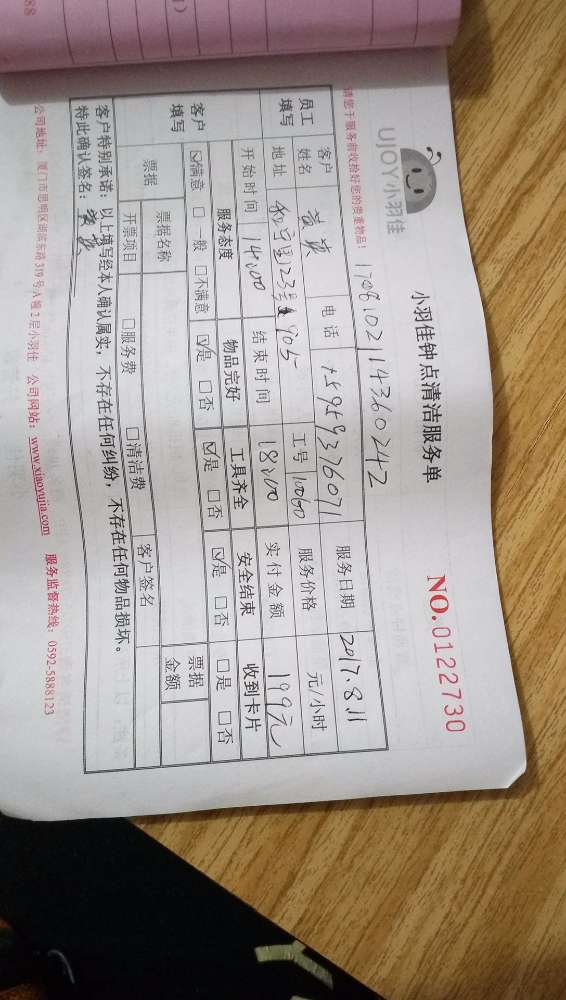 UJOY小羽佳
小羽佳钟点清洁服务单
NO.0122730
请您于服务前收拾好您的贵重物品!
170810211436 0242
员工填写
客户姓名 电话 15959376071 服务日期 2017.8.11
地址 和宁里123号 905 工号 10060 服务价格 元/小时
开始时间 14:00 结束时间 18:00 实付金额 199元
客户填写
服务态度 物品完好 工具齐全 安全结束 收到卡片
☑满意 □一般 □不满意 ☑是 □否 ☑是 □否 ☑是 □否 □是 □否
票据 票据名称 票据金额
开票项目 □服务费 □清洁费 客户签名
客户特别承诺：以上填写经本人确认属实，不存在任何纠纷，不存在任何物品损坏。
特此确认签名：
公司地址：厦门市思明区湖滨东路319号A幢2层小羽佳 公司网站：www.xiaoyujia.com 服务监督热线：0592-5888123